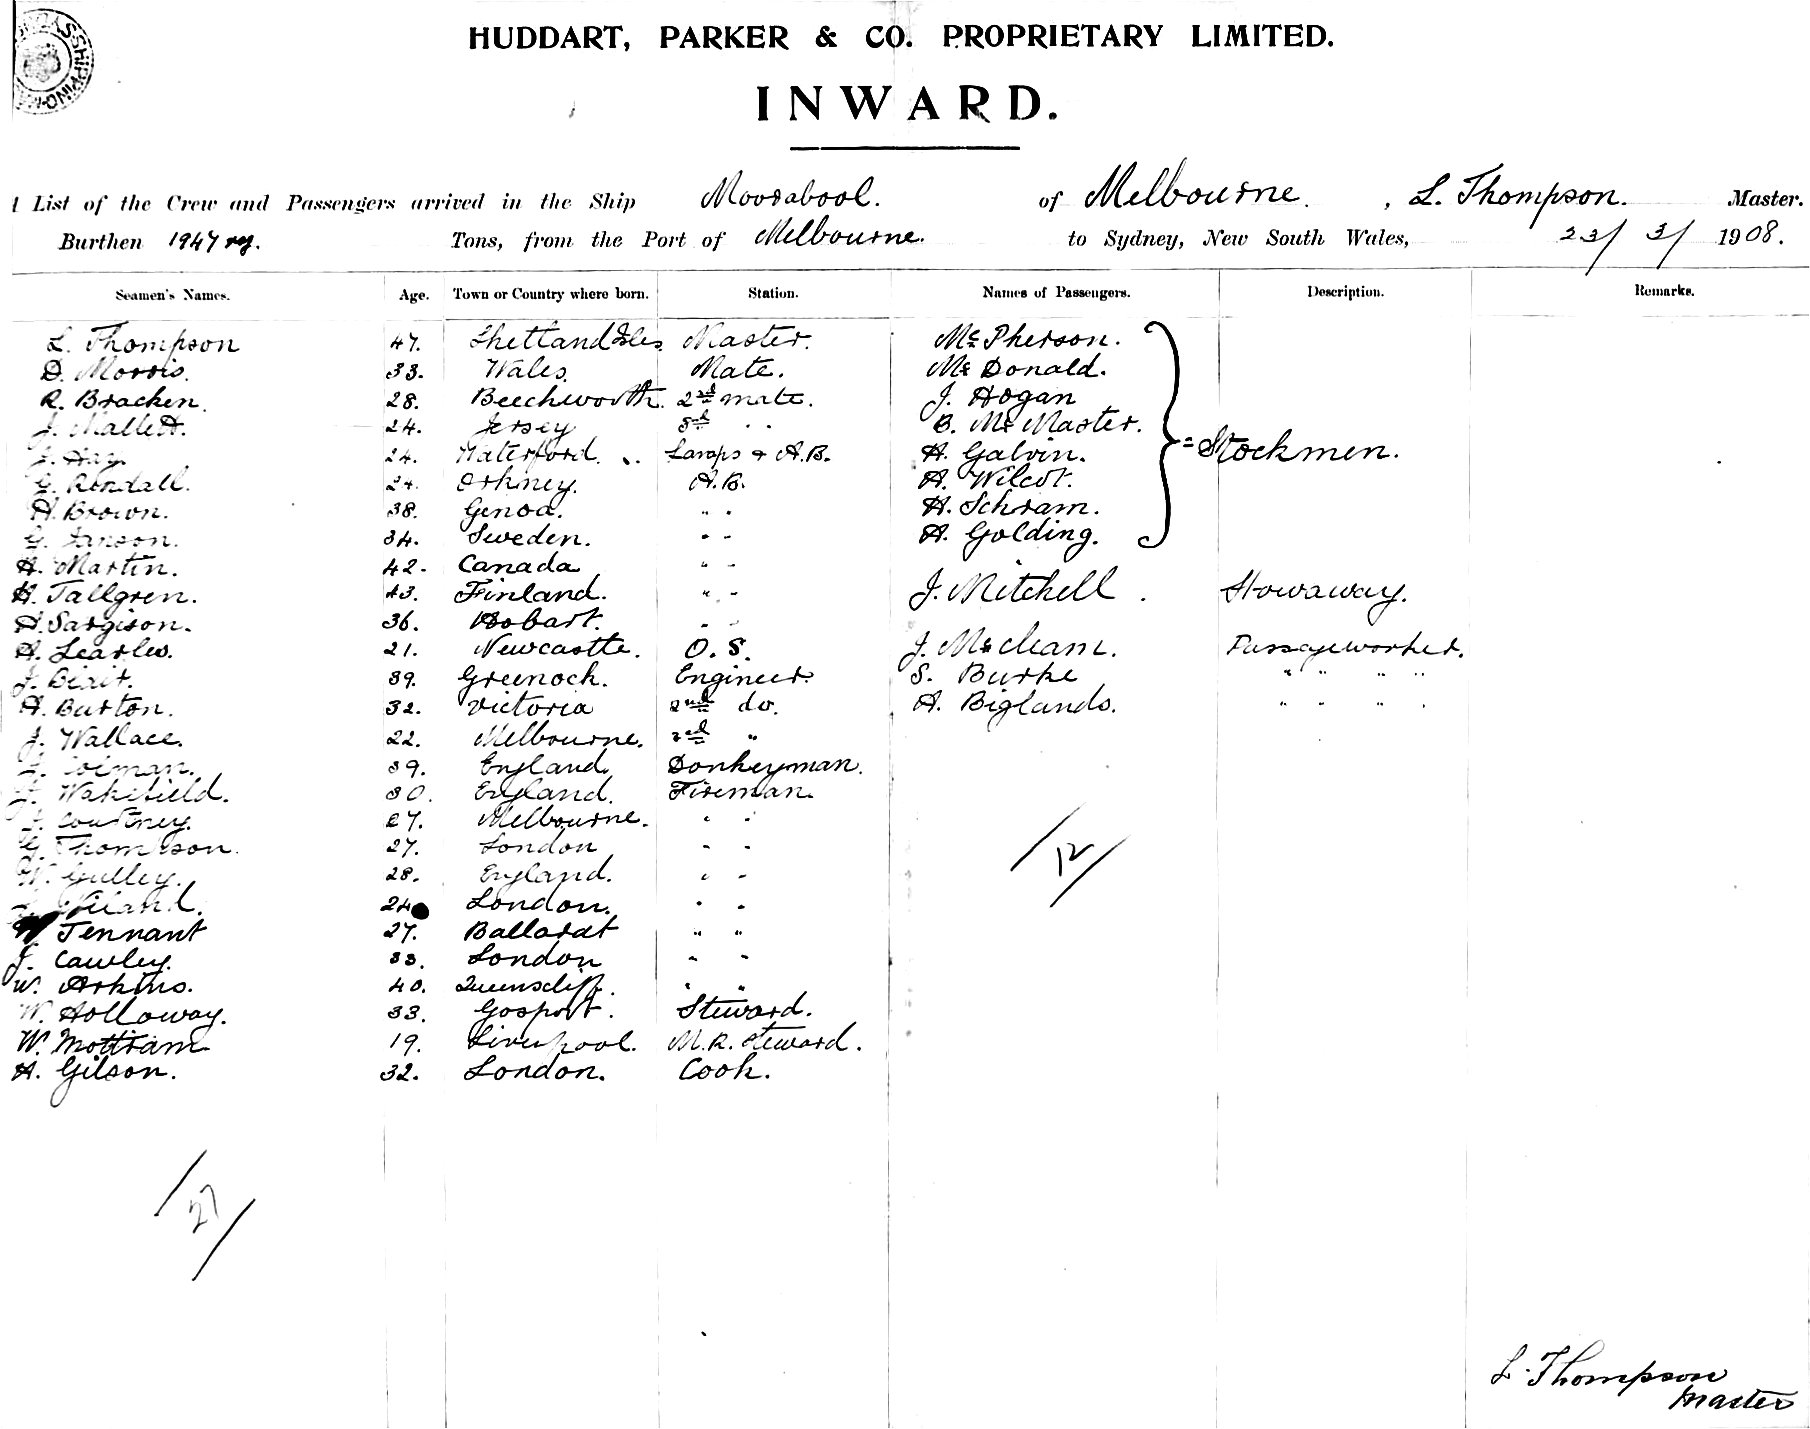 HUDDART, PARKER & CO. PROPRIETARY LIMITED.
INWARD.
List of the Crew and Passengers arrived in the Ship Moorabool. of Melbourne. , L. Thompson. Master.
Burthen 1947 rg. Tons, from the Port of Melbourne. to Sydney, New South Wales, 23/ 3/ 1908.
Seamen's Names. Age. Town or Country where born. Station. Names of Passengers. Description. Remarks.
L. Thompson 47. Shetland Isles. Master. Mc Pherson.
D. Morris. 33. Wales. Mate. Mc Donald.
R. Bracken. 28. Beechworth. 2nd mate. J. Hogan
J. Mallett. 24. Jersey 3rd " " B. Mc Master.
J. Hay. 24. Waterford. Lamps & A.B. H. Galvin. = Stockmen.
G. Rendall. 24. Orkney. A.B. A. Wilcot.
A. Brown. 38. Genoa. " " H. Schram.
G. Janson. 34. Sweden. " " A. Golding.
A. Martin. 42. Canada " "
H. Tallgren. 43. Finland. " " J. Mitchell. Stowaway.
A. Sargison. 36. Hobart. " "
A. Searles. 21. Newcastle. O.S. J. Passageworker.
J. Blair. 39. Greenock. Engineer. S. Burke " " " "
A. Burton. 32. Victoria 2nd do. A. Biglands. " " " "
J. Wallace. 22. Melbourne. 3rd "
39. England. Donkeyman.
J. Wakefield. 30. England. Fireman.
J. Courtney. 27. Melbourne. " "
G. Thompson. 27. London " "
W. Gulley. 28. England. " "
24 London. " "
Tennant 27. Ballarat " "
J. Cawley. 33. London " "
W. Arkins. 40. Queenscliff. " "
W. Holloway. 33. Gosport. Steward.
W. Mottram 19. Liverpool. M.R. Steward.
A. Gilson. 32. London. Cook.
/12/
/27/
L. Thompson
Master